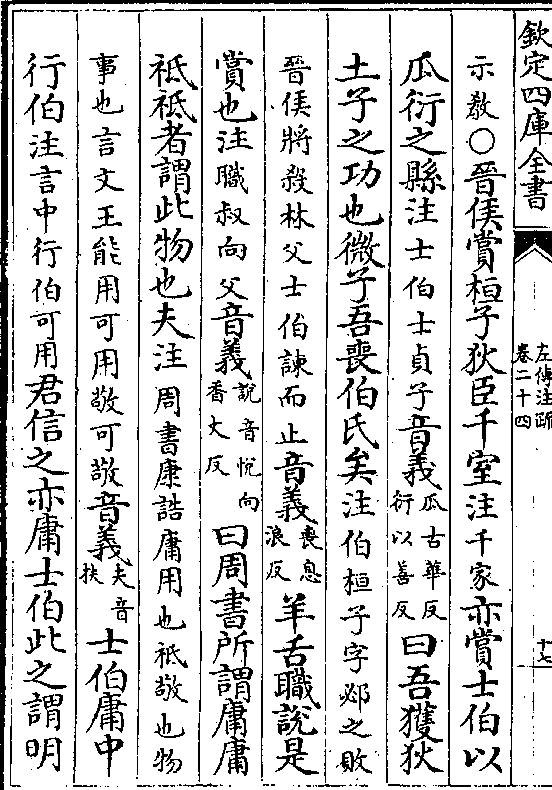 欽定四庫全書
左傳注疏
卷二十四
十七
示教○晉侯賞桓子狄臣千室注千家亦賞士伯以
瓜衍之縣注士伯士貞子音義瓜古華反衍以善反曰吾獲狄
土子之功也微子吾喪伯氏矣注伯桓子字邲之敗
晉侯將殺林父士伯諫而止音義喪息浪反羊舌職說是
賞也注職叔向父音義說音悅向香丈反曰周書所謂庸庸
祗祗者謂此物也夫注周書康誥庸用也祗敬也物
事也言文王能用可用敬可敬音義夫音扶士伯庸中
行伯注言中行伯可用君信之亦庸士伯此之謂明